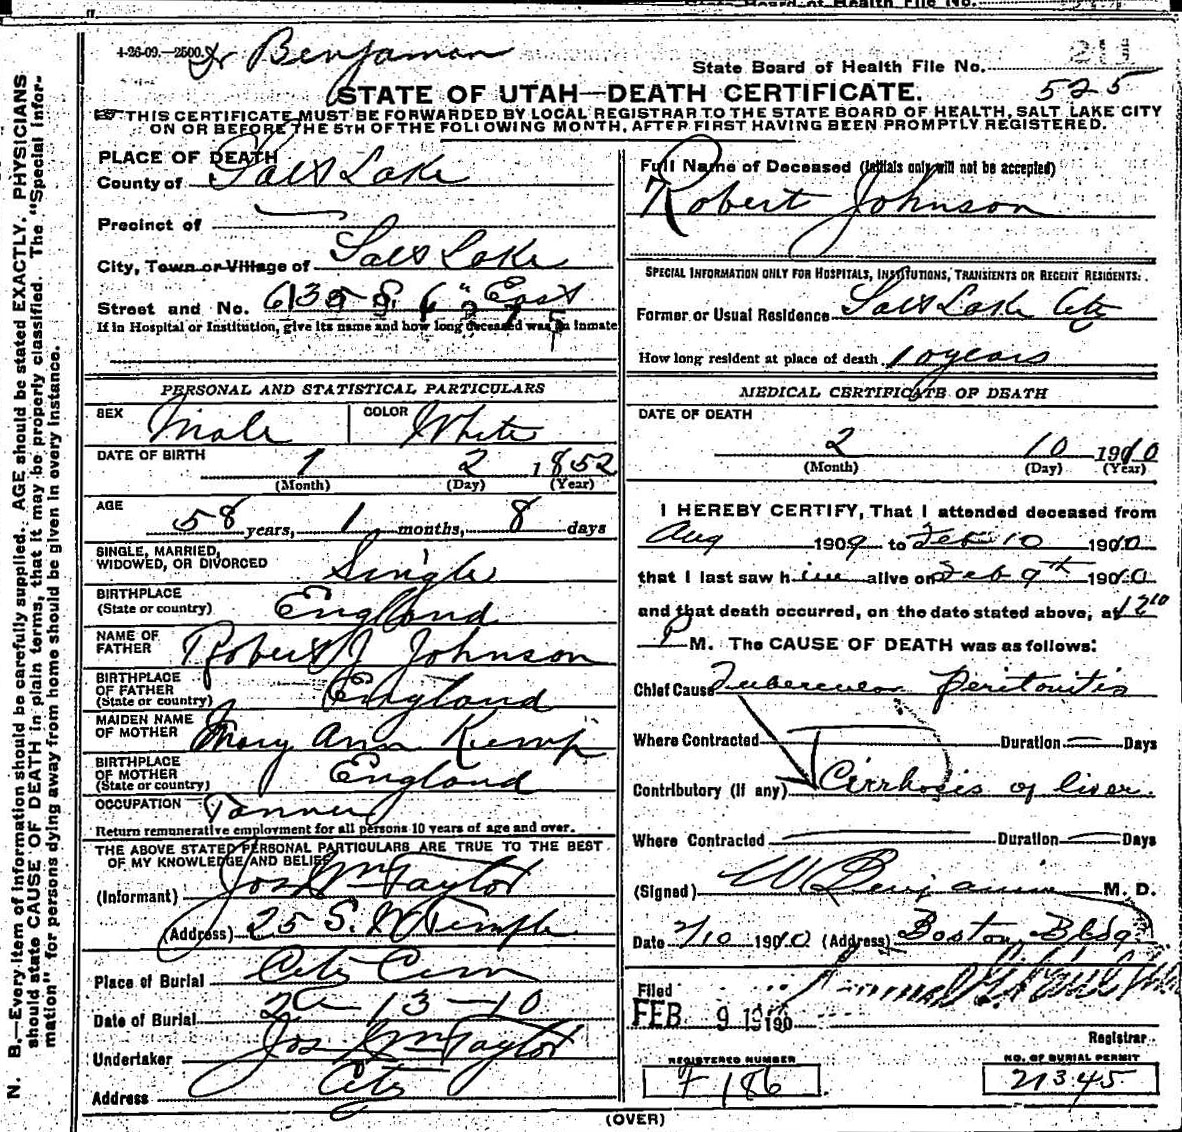 State Board of Health File No.
4-26-09.—2500.
Dr Benjaman
State Board of Health File No. 211
525
STATE OF UTAH—DEATH CERTIFICATE.
THIS CERTIFICATE MUST BE FORWARDED BY LOCAL REGISTRAR TO THE STATE BOARD OF HEALTH, SALT LAKE CITY
ON OR BEFORE THE 5TH OF THE FOLLOWING MONTH, AFTER FIRST HAVING BEEN PROMPTLY REGISTERED.
N. B.—Every item of information should be carefully supplied. AGE should be stated EXACTLY. PHYSICIANS
should state CAUSE OF DEATH in plain terms, that it may be properly classified. The "Special Infor-
mation" for persons dying away from home should be given in every instance.
PLACE OF DEATH
County of Salt Lake
Precinct of
City, Town or Village of Salt Lake
Street and No. East
If in Hospital or Institution, give its name and how long deceased was an inmate
PERSONAL AND STATISTICAL PARTICULARS
SEX Male COLOR White
DATE OF BIRTH 1 2 1852
(Month) (Day) (Year)
AGE 58 years, 1 months, 8 days
SINGLE, MARRIED,
WIDOWED, OR DIVORCED Single
BIRTHPLACE
(State or country) England
NAME OF
FATHER Robert J Johnson
BIRTHPLACE
OF FATHER
(State or country) England
MAIDEN NAME
OF MOTHER Mary Ann Kemp
BIRTHPLACE
OF MOTHER
(State or country) England
OCCUPATION Tanner
Return remunerative employment for all persons 10 years of age and over.
THE ABOVE STATED PERSONAL PARTICULARS ARE TRUE TO THE BEST
OF MY KNOWLEDGE AND BELIEF
(Informant) Jos Wm Taylor
(Address) 25 S. W Temple
Place of Burial City Cem
Date of Burial 2 13-10
Undertaker Jos Wm Taylor
Address City
Full Name of Deceased (Initials only will not be accepted)
Robert Johnson
SPECIAL INFORMATION ONLY FOR HOSPITALS, INSTITUTIONS, TRANSIENTS OR RECENT RESIDENTS:
Former or Usual Residence Salt Lake City
How long resident at place of death 10 years
MEDICAL CERTIFICATE OF DEATH
DATE OF DEATH
2 10 1910
(Month) (Day) (Year)
I HEREBY CERTIFY, That I attended deceased from
Aug 1909 to Feb 10 1910
that I last saw him alive on Feb 9th 1910
and that death occurred, on the date stated above, at 12 10
P M. The CAUSE OF DEATH was as follows:
Chief Cause Tubercular Peritonitis
Where Contracted Duration Days
Contributory (if any) Cirrhosis of liver.
Where Contracted Duration Days
(Signed) W Benjamin M. D.
Date 2/10 1910 (Address) Boston Bldg.
Filed
FEB 9 1910 190
Registrar
REGISTERED NUMBER
F 186
NO. OF BURIAL PERMIT
21345
(OVER)